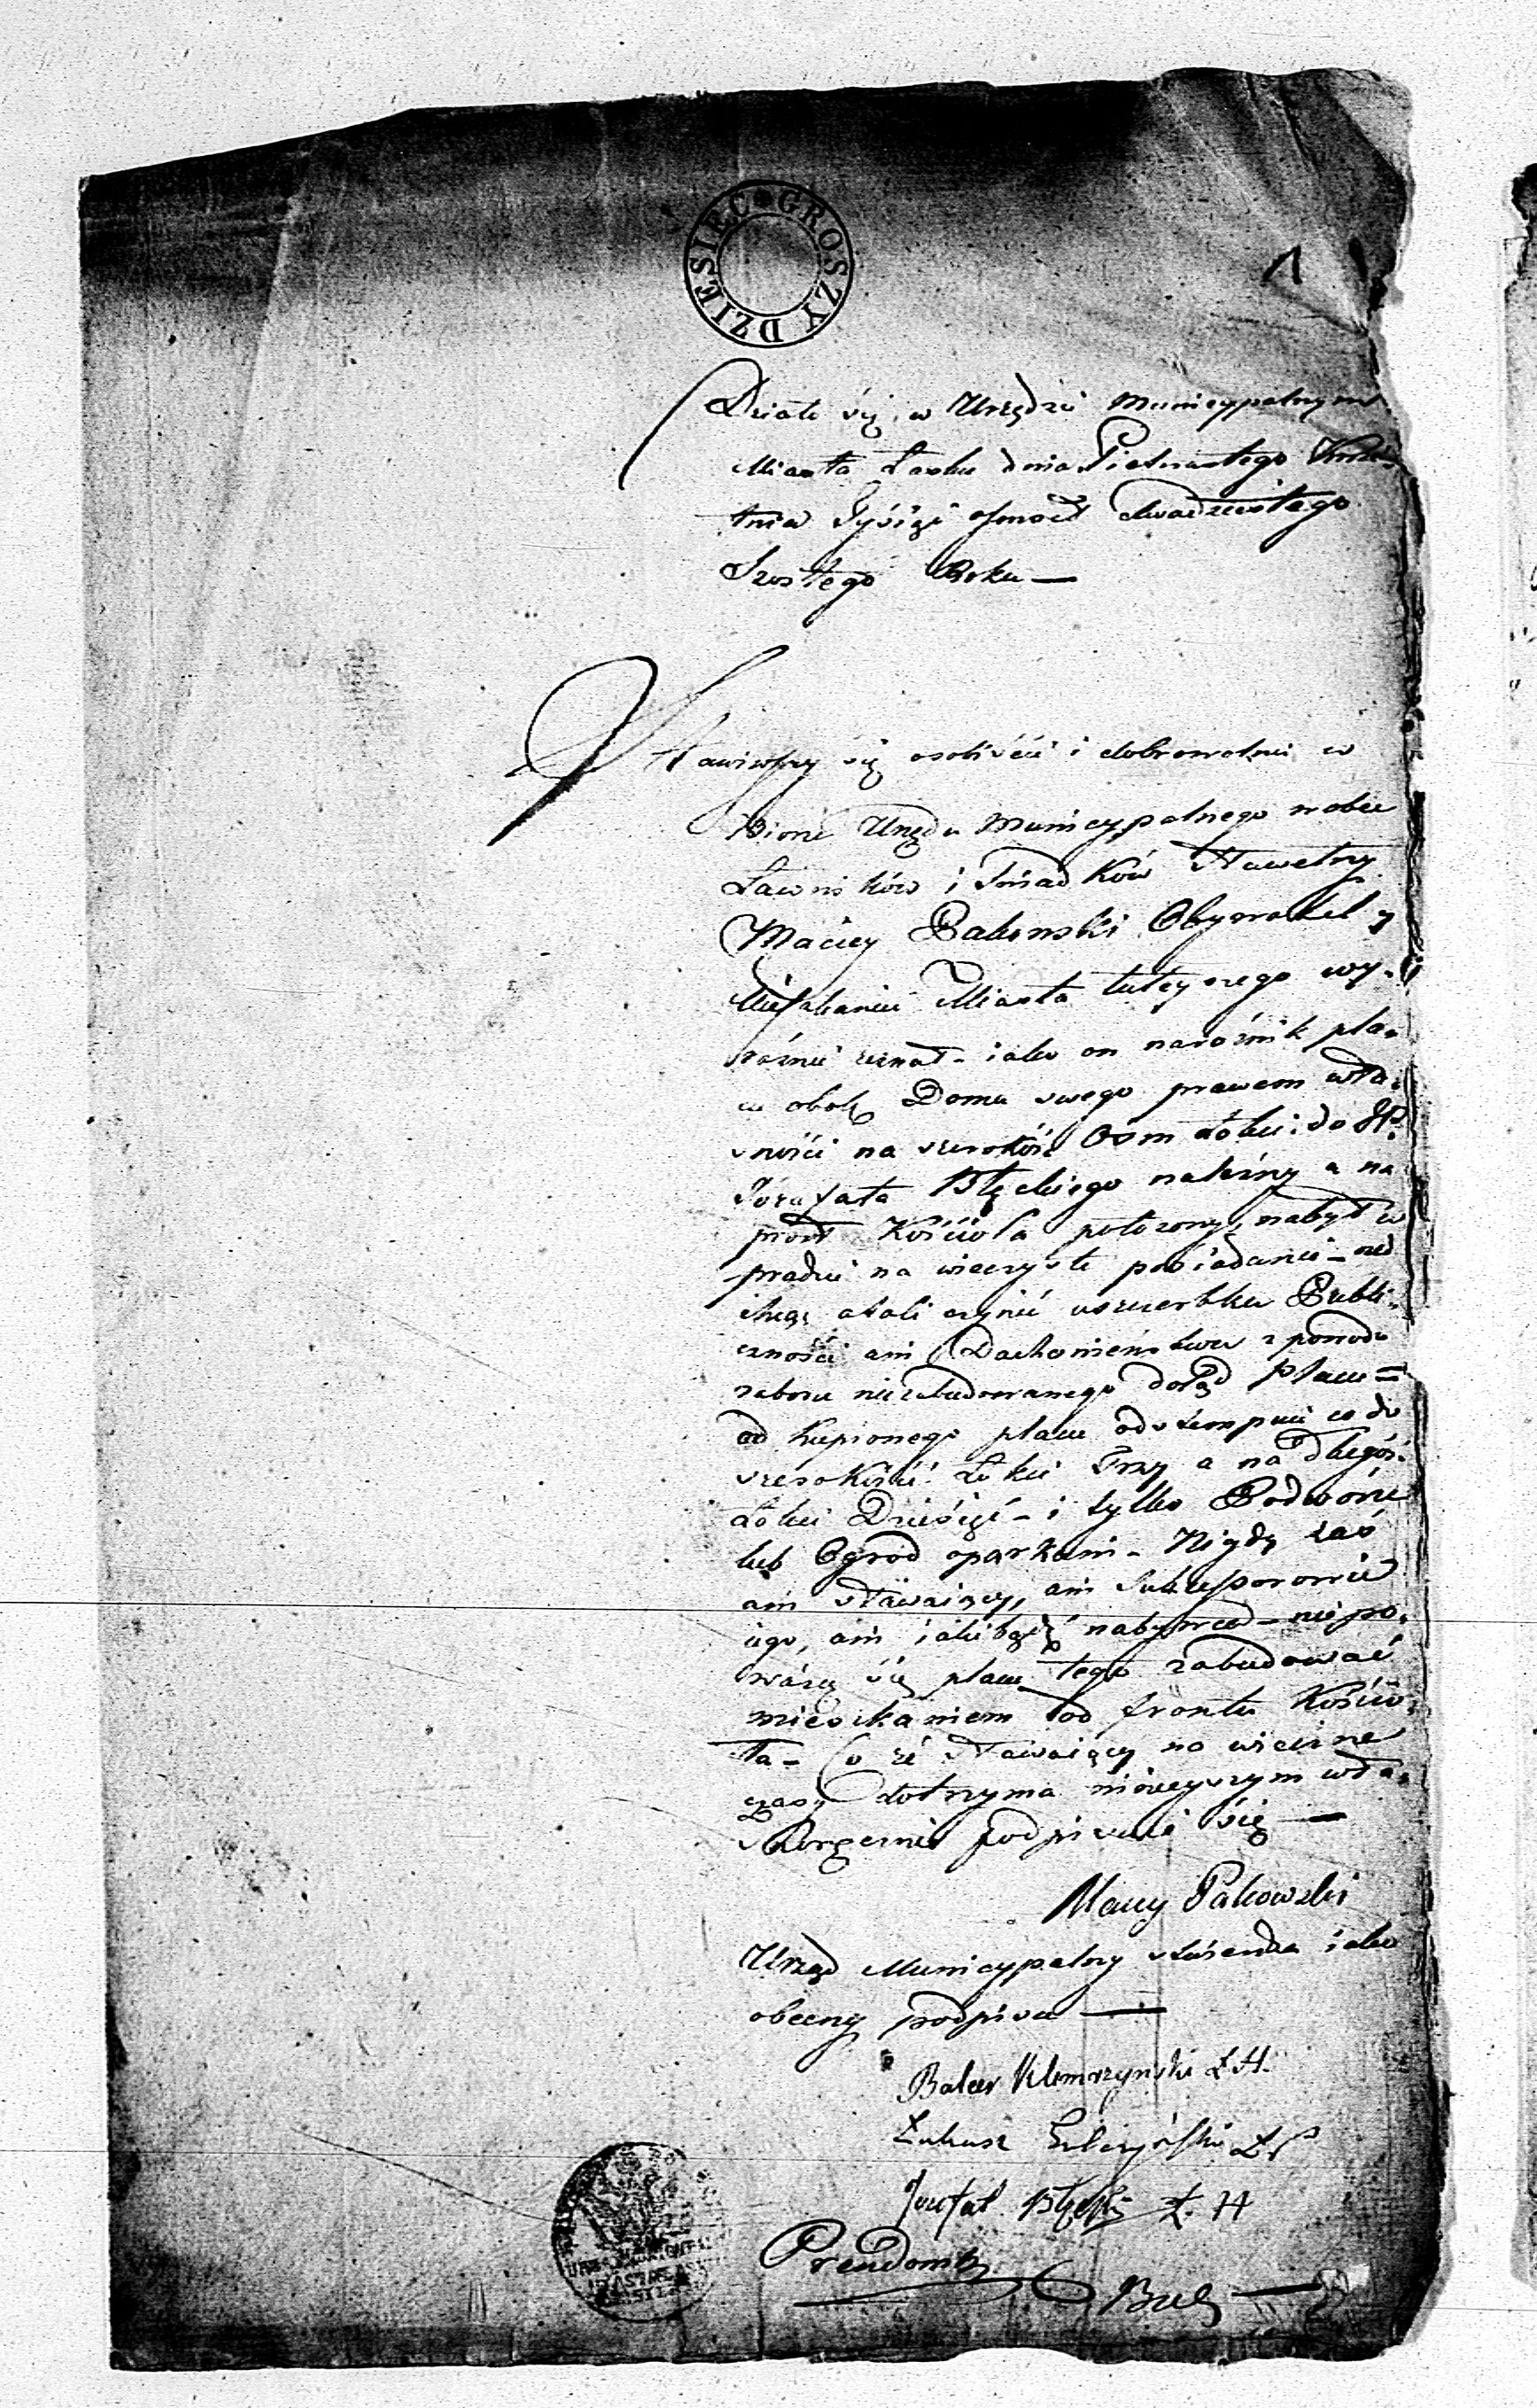 DZIESIĘC GROSZY
1
Działo się w Urzędzie Municypalnym
Miasta Łasku dnia Pietnastego Kwie-
tnia Tysiąc osmset dwadziestego
Szostego Roku —
Stawiwszy się osobiście i dobrowolnie w
Biorze Urzędu Municypalnego wobec
Ławników i Swiadków Sławetny
Maciey Pakowski Obywatel y
Mieszkaniec Miasta tuteyszego wy-
raźnie zeznał – iako on narożnik pla-
cu obok Domu swego prawem wła-
sności na szerokość Osm Łokci do JP.
Józafata Błęckiego należny a na
przod Kościoła położony, nabył w
prawdzie na wieczyste posiadanie – nie
chcąc atoli czynić uszczerbku Publi-
czności ani Duchowieństwu z powodu
zaboru niezabudowanego dotąd Placu =
od kupionego placu odstempuie co do
szerokości Łokci Trzy a na długość
Łokci Dziesięć – i tylko Podwórze
lub Ogrod oparkani – Nigdy zaś
ani stawaiący, ani Sukcessorowie
iego, ani iakibądź nabywca – nie po-
waży się placu tego zabudować
mieszkaniem od frontu Kościo-
ła – Co że stawaiący na wieczne
czasy dotrzyma ninieyszym wła-
snoręcznie podpisuie się —
Maciey Pakowski
Urząd Municypalny stwierdza iako
obecny podpisu —
Balcer Klimczyński Ł H.
Łukasz Ł P
Jozefat Błęcki Ł. H